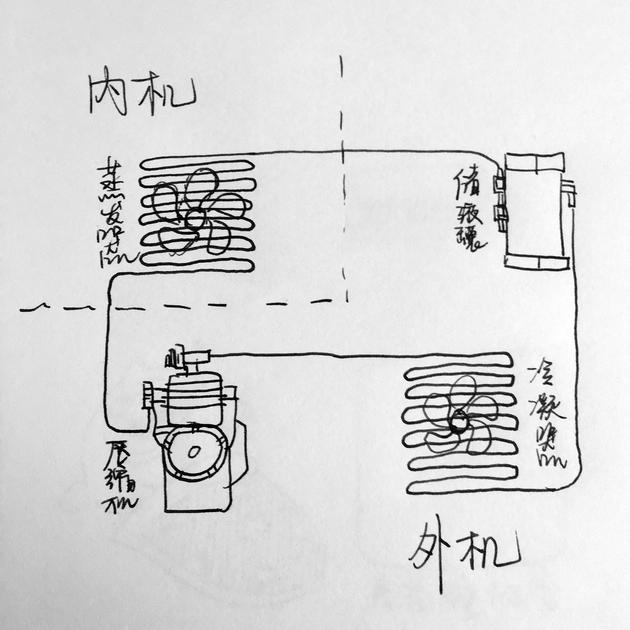 内机
蒸发器
储液罐
冷凝器
压缩机
外机